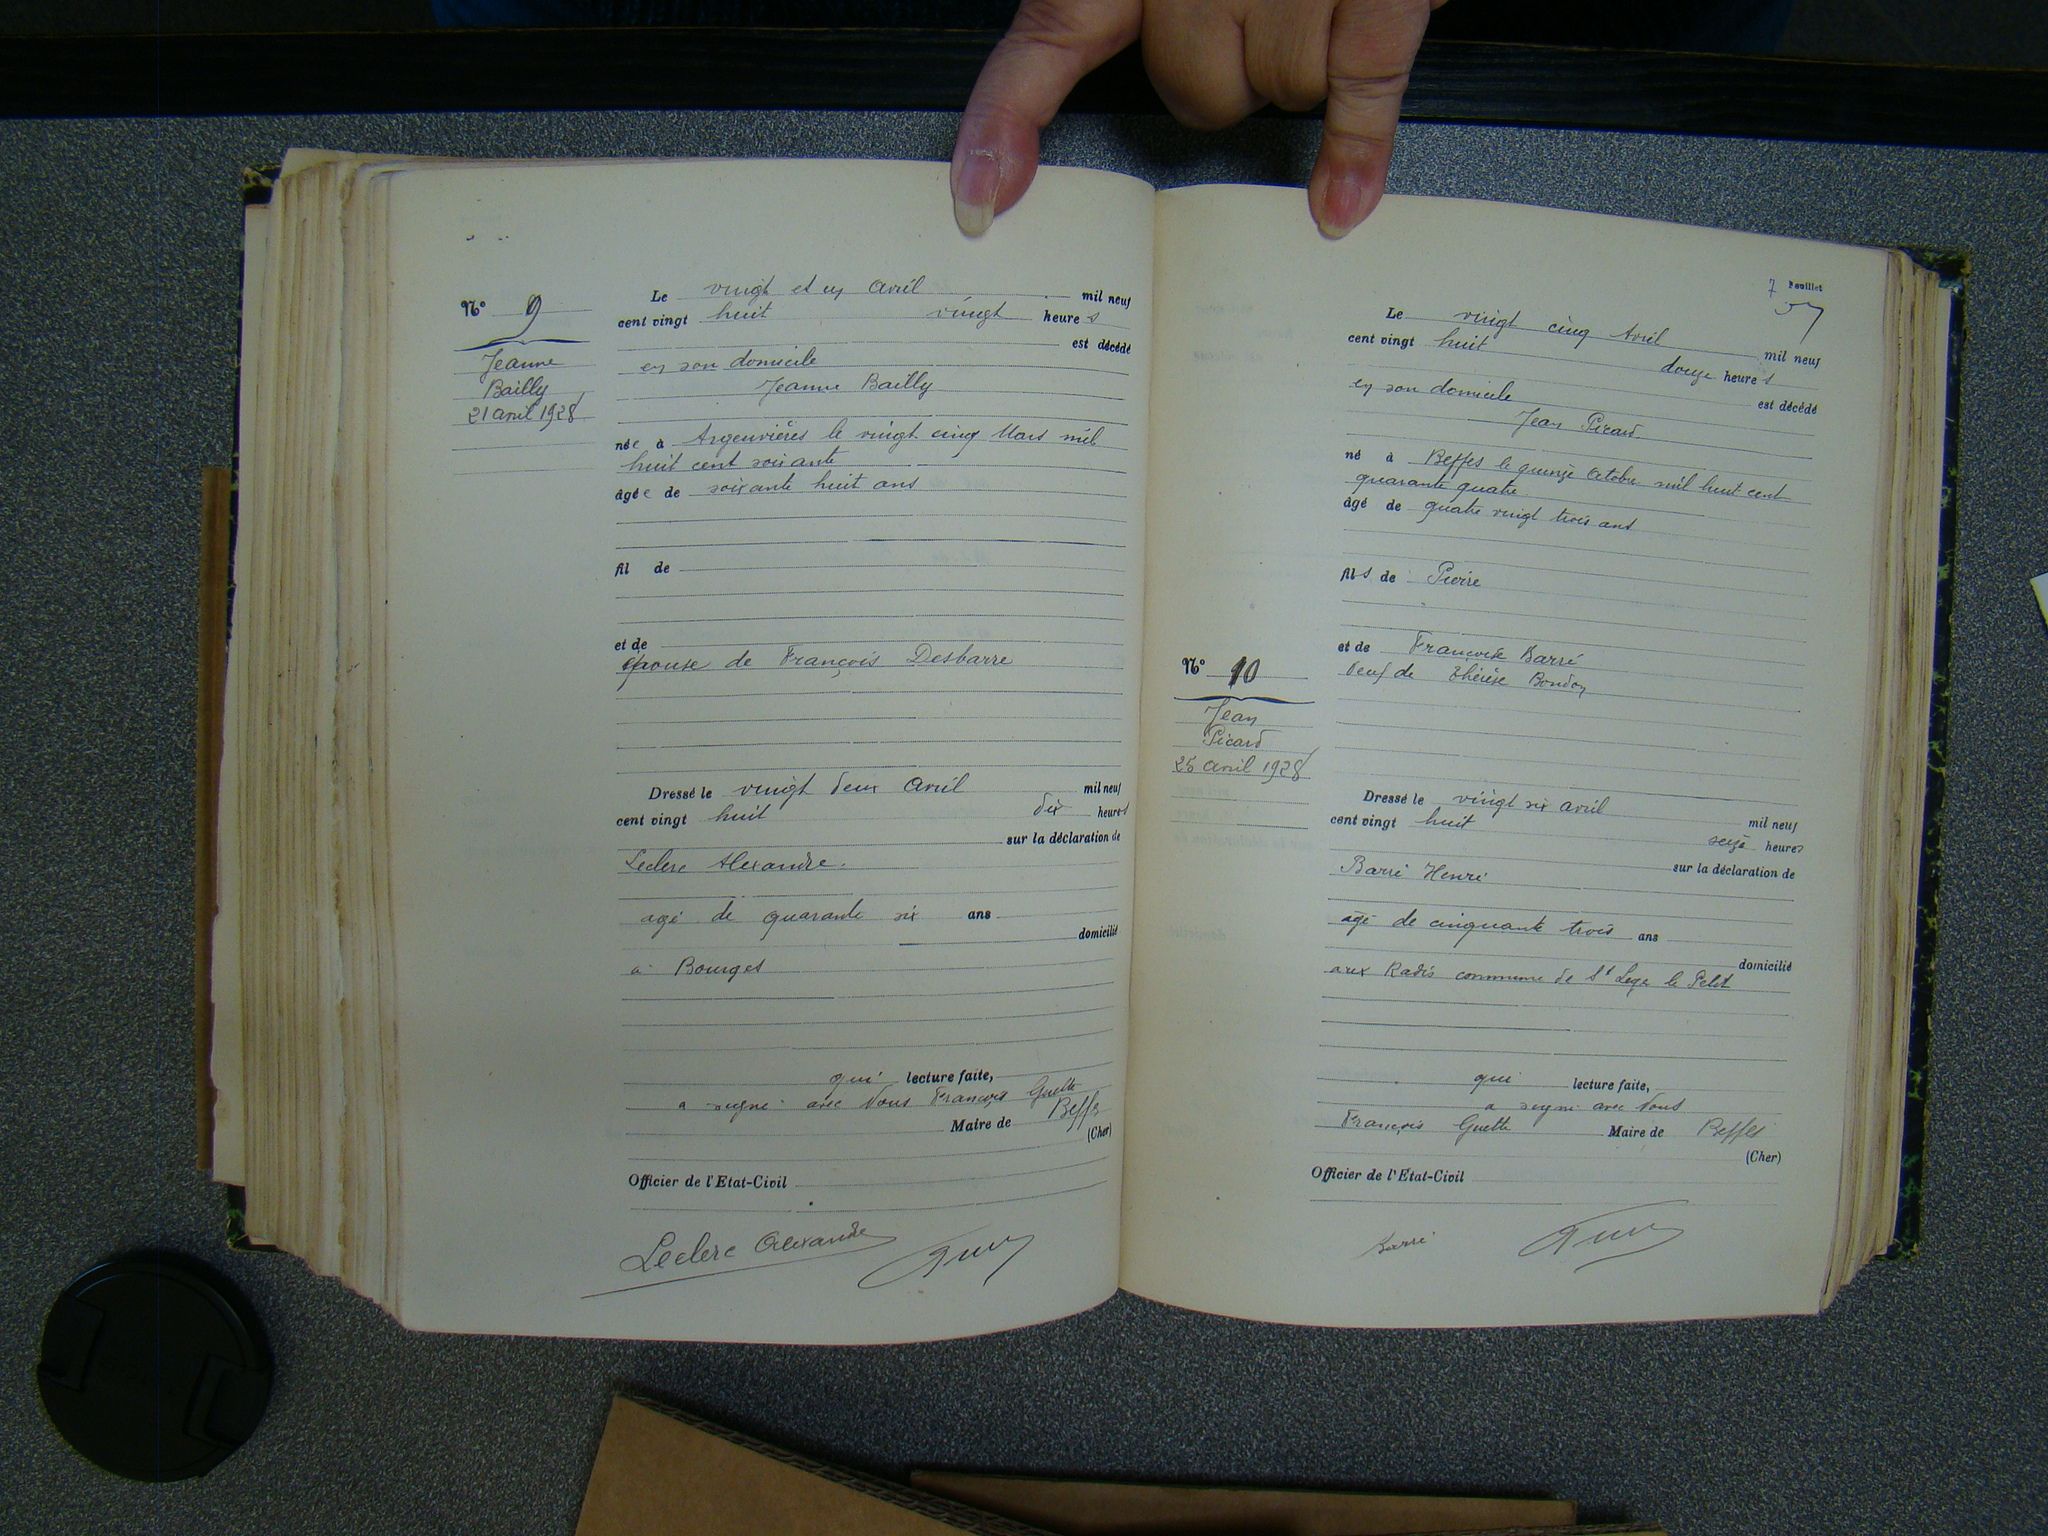 N° 9
Jeanne
Bailly
21 avril 1928
Le vingt et un Avril mil neuf
cent vingt huit vingt heures
est décédé
en son domicile
Jeanne Bailly
née à Argenvières le vingt cinq Mars mil
huit cent soixante
âgée de soixante huit ans
fil de
et de
épouse de François Desbarre
Dressé le vingt deux Avril mil neuf
cent vingt huit dix heures
sur la déclaration de
Leclerc Alexandre.
agé de quarante six ans
domicilié
à Bourges
qui lecture faite,
a signé avec Nous François Guette
Maire de Beffes
(Cher)
Officier de l'Etat-Civil
Leclerc Alexandre
7 Feuillet
57
N° 10
Jean
Picard
25 avril 1928
Le vingt cinq Avril mil neuf
cent vingt huit douze heures
est décédé
en son domicile
Jean Picard
né à Beffes le quinze Octobre mil huit cent
quarante quatre
âgé de quatre vingt trois ans
fils de Pierre
et de Françoise Barré
Veuf de Thérèse Boudon
Dressé le vingt six avril mil neuf
cent vingt huit seize heures
sur la déclaration de
Barré Henri
agé de cinquante trois ans
domicilié
aux Radis commune de St Leger le Petit
qui lecture faite,
a signé avec Nous
François Guette Maire de Beffes
(Cher)
Officier de l'Etat-Civil
Barré